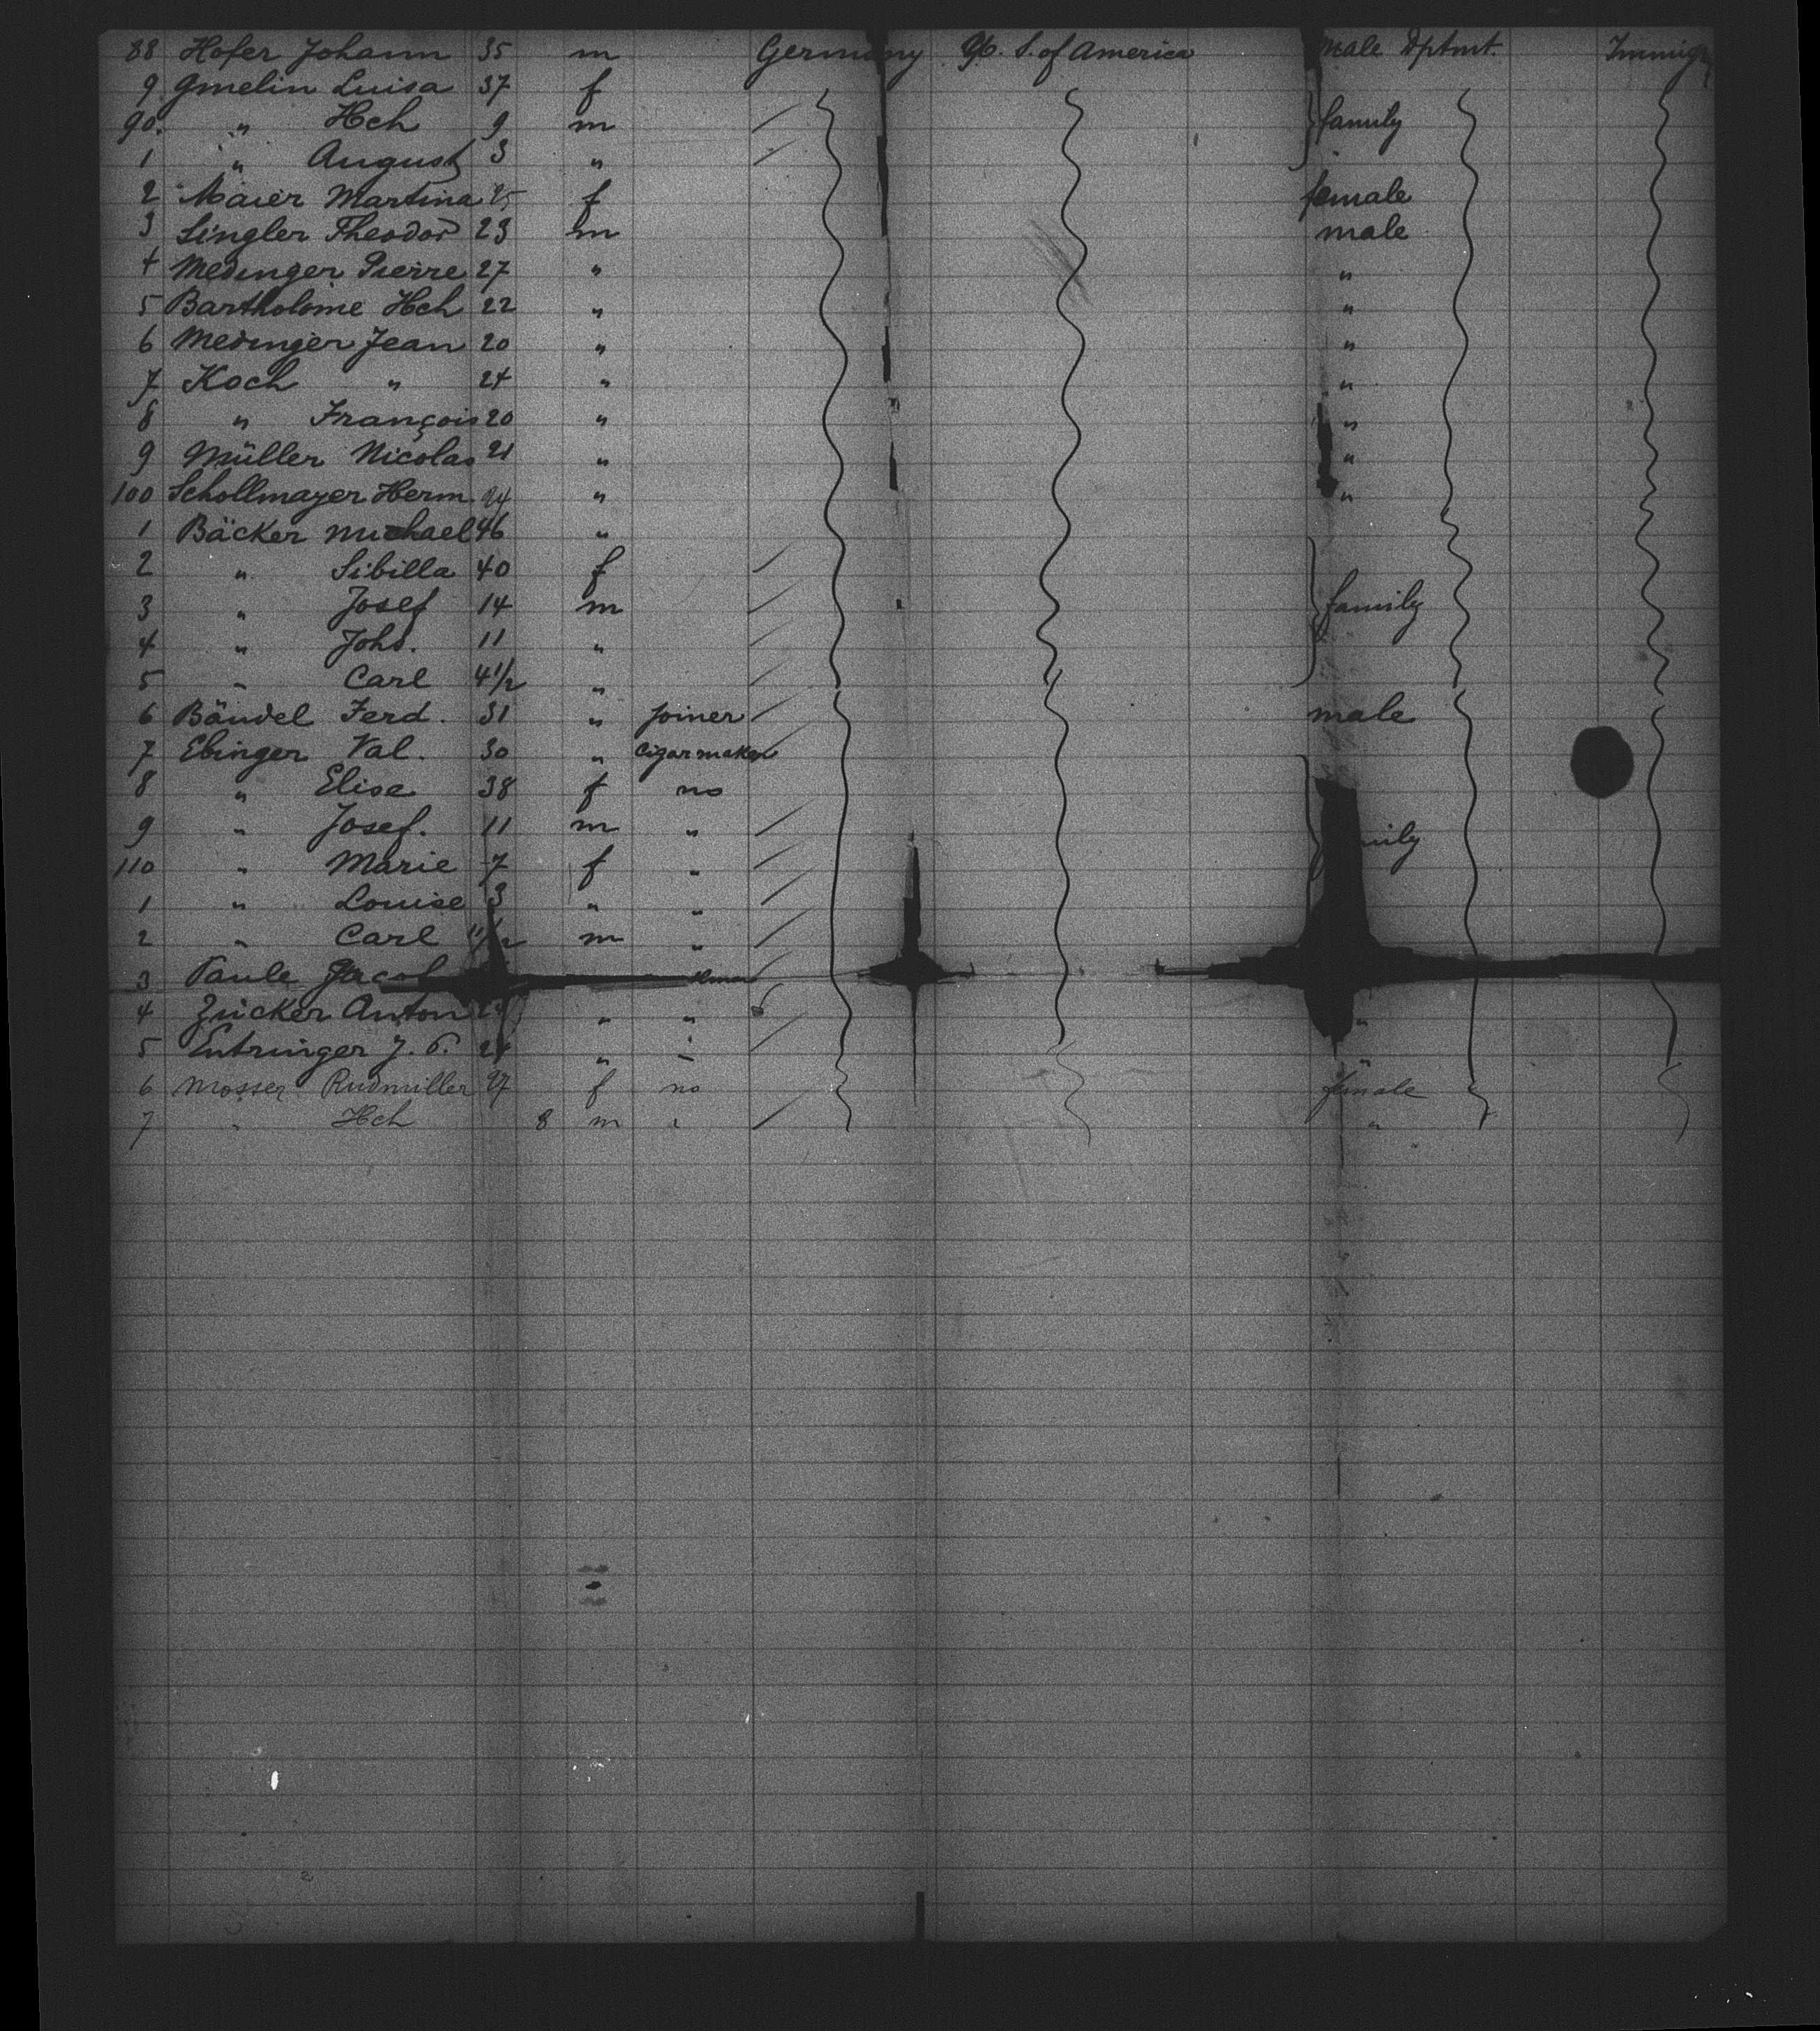 88 Hofer Johann 35 m Germany U. S. of America Male Dptmt. Immigr
9 Gmelin Luisa 37 f
90. " Hch 9 m family
1 " August 3 "
2 Maier Martina 25 f female
3 Singler Theodor 23 m male
4 Medinger Pierre 27 " "
5 Bartholome Hch 22 " "
6 Medinger Jean 20 " "
7 Koch " 24 " "
8 " François 20 " "
9 Müller Nicolas 21 " "
100 Schollmayer Herm. 24 " "
1 Bäcker Michael 46 "
2 " Sibilla 40 f
3 " Josef 14 m family
4 " Johs. 11 "
5 " Carl 4 1/2 "
6 Bändel Ferd. 31 " Joiner male
7 Ebinger Val. 30 " Cigarmaker
8 " Elise 38 f no
9 " Josef. 11 m " mily
110 " Marie 7 f "
1 " Louise 3 " "
2 " Carl m "
3 Paule Jacob
4 Zücker Anton " " "
5 Entringer J. P. 24 " " "
6 Mosser 27 f no female
7 " Hch 8 m " "